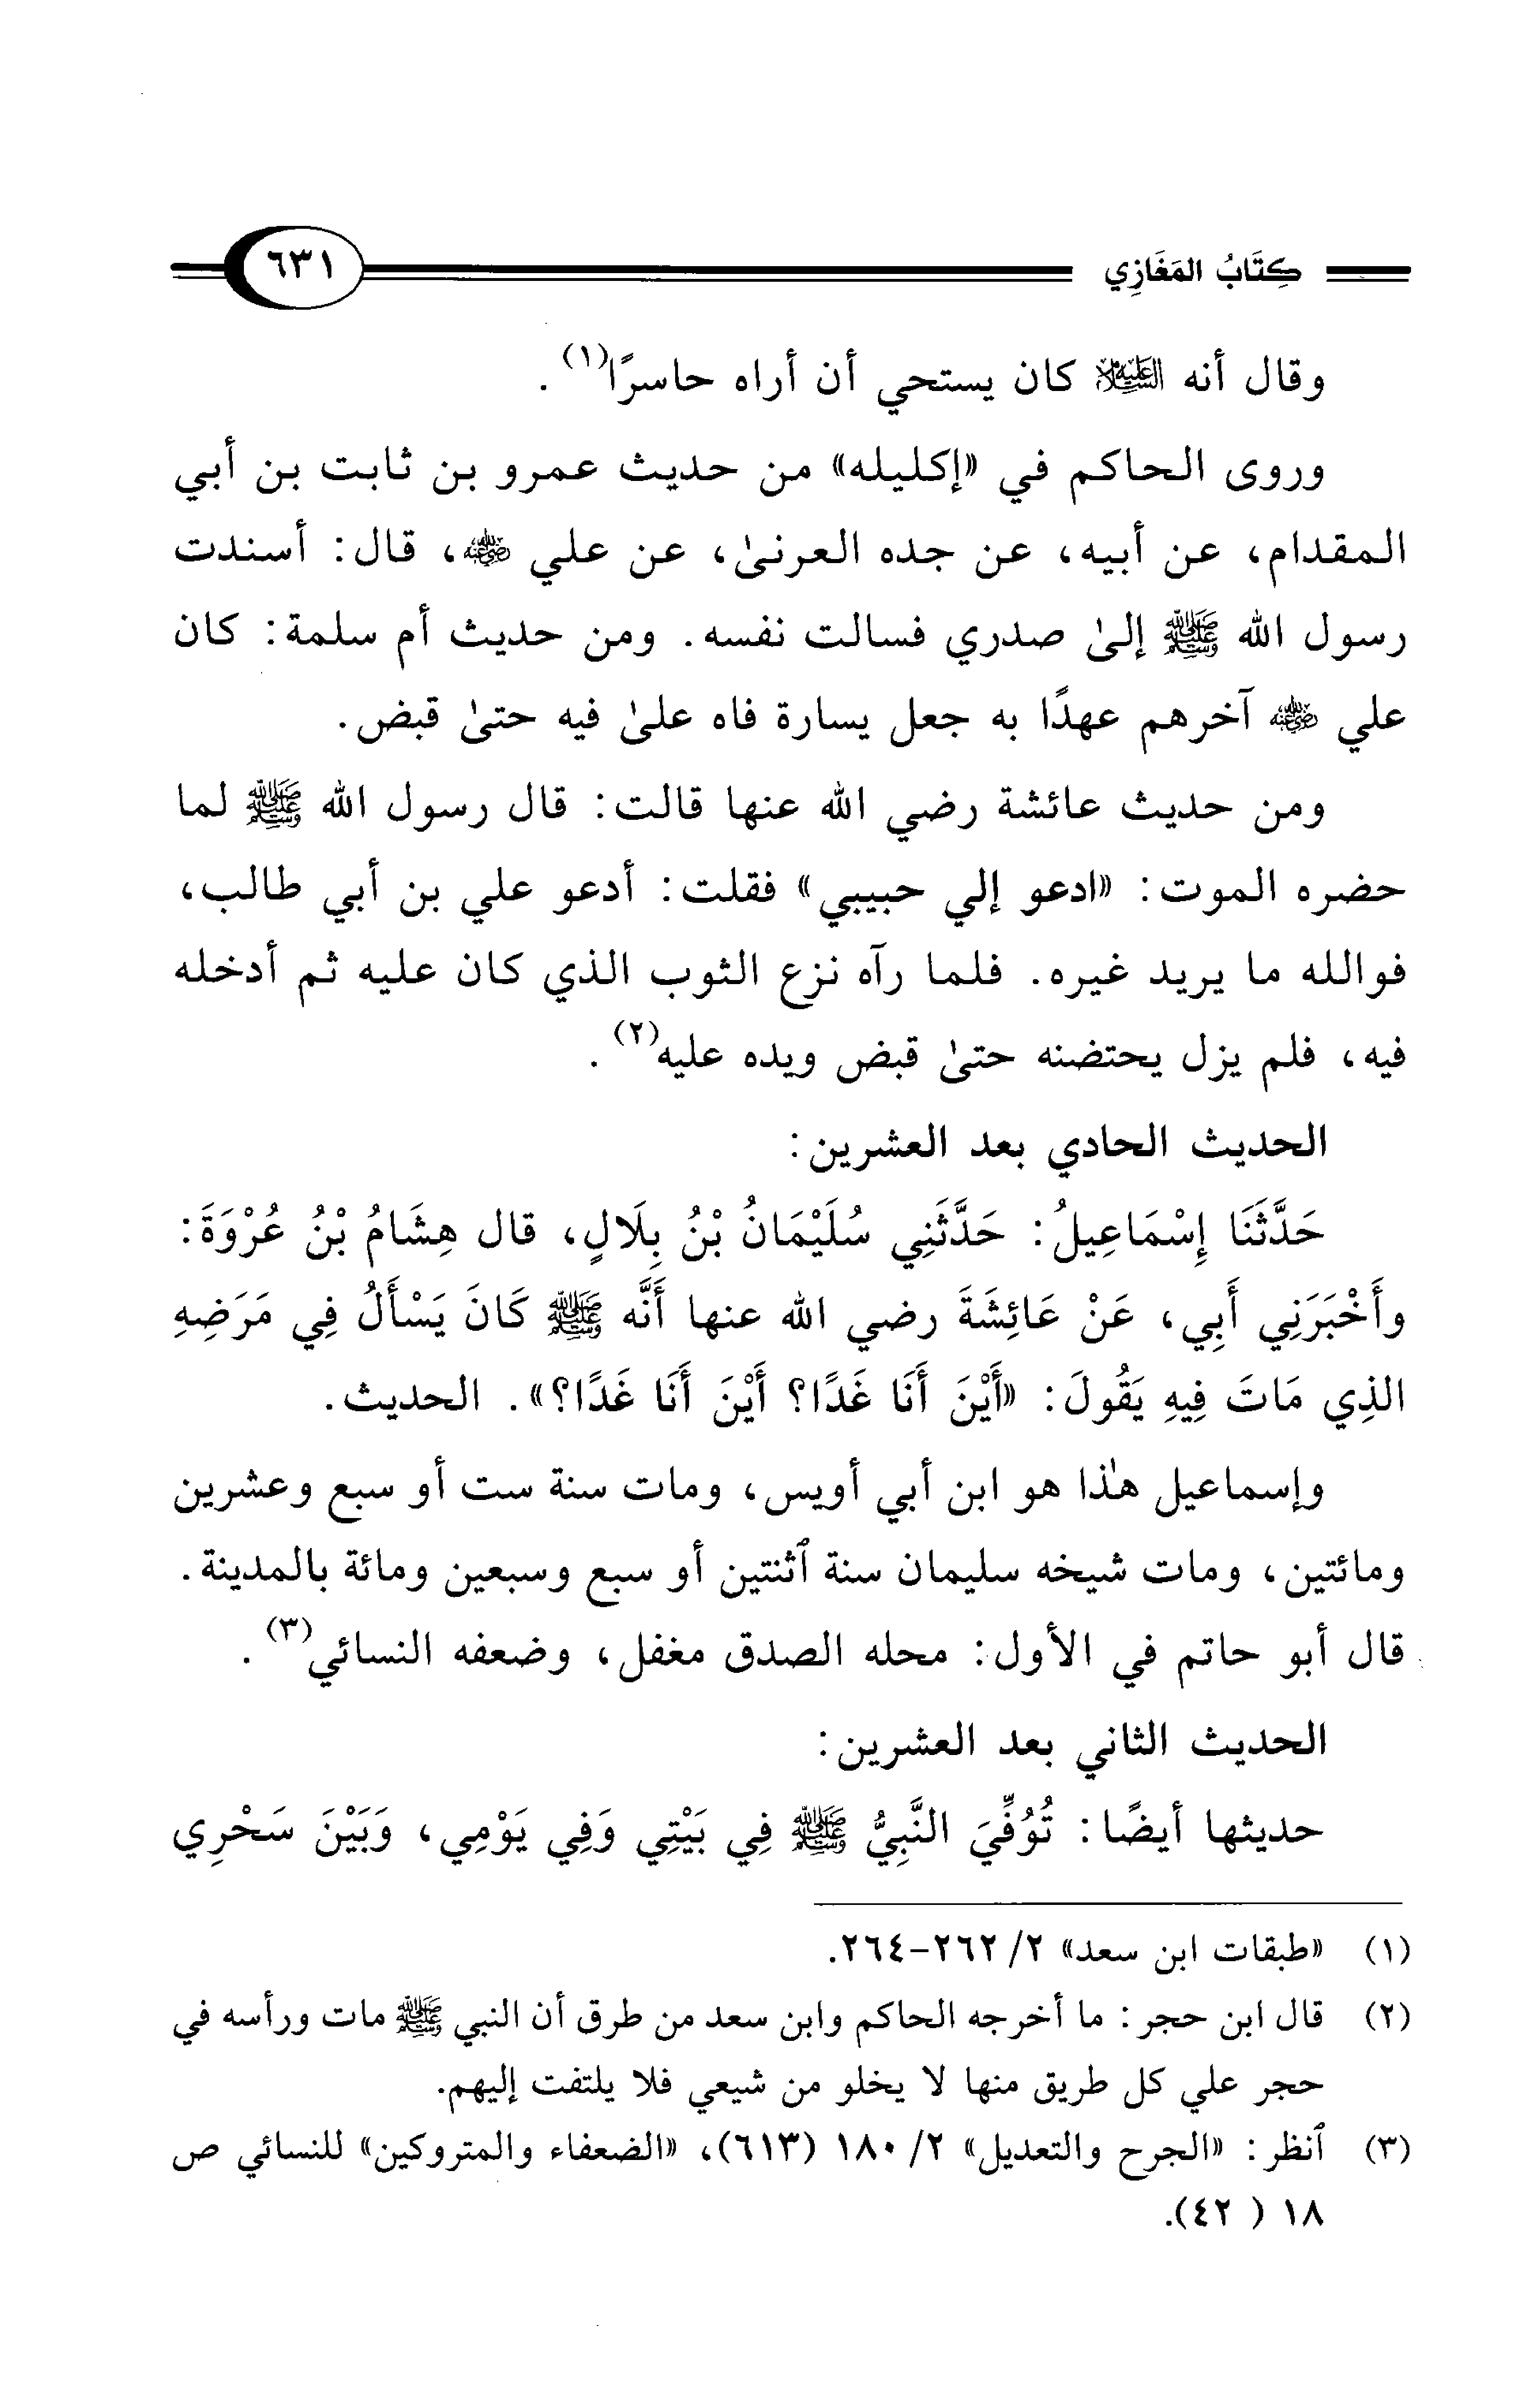 كِتَابُ المَغَازِي ٦٣١
وقال أنه عليه السلام كان يستحي أن أراه حاسرًا(١).
وروى الحاكم في «إكليله» من حديث عمرو بن ثابت بن أبي
المقدام، عن أبيه، عن جده العرنىٰ، عن علي رضي الله عنه، قال: أسندت
رسول الله ﷺ إلىٰ صدري فسالت نفسه. ومن حديث أم سلمة: كان
علي رضي الله عنه آخرهم عهدًا به جعل يسارة فاه علىٰ فيه حتىٰ قبض.
ومن حديث عائشة رضي الله عنها قالت: قال رسول الله ﷺ لما
حضره الموت: «ادعو إلي حبيبي» فقلت: أدعو علي بن أبي طالب،
فوالله ما يريد غيره. فلما رآه نزع الثوب الذي كان عليه ثم أدخله
فيه، فلم يزل يحتضنه حتىٰ قبض ويده عليه(٢).
الحديث الحادي بعد العشرين:
حَدَّثَنَا إِسْمَاعِيلُ: حَدَّثَنِي سُلَيْمَانُ بْنُ بِلَالٍ، قال هِشَامُ بْنُ عُرْوَةَ:
وأَخْبَرَنِي أَبِي، عَنْ عَائِشَةَ رضي الله عنها أَنَّه ﷺ كَانَ يَسْأَلُ فِي مَرَضِهِ
الذِي مَاتَ فِيهِ يَقُولَ: «أَيْنَ أَنَا غَدًا؟ أَيْنَ أَنَا غَدًا؟». الحديث.
وإسماعيل هٰذا هو ابن أبي أويس، ومات سنة ست أو سبع وعشرين
ومائتين، ومات شيخه سليمان سنة ٱثنتين أو سبع وسبعين ومائة بالمدينة.
قال أبو حاتم في الأول: محله الصدق مغفل، وضعفه النسائي(٣).
الحديث الثاني بعد العشرين:
حديثها أيضًا: تُوُفِّيَ النَّبِيُّ ﷺ فِي بَيْتِي وَفِي يَوْمِي، وَبَيْنَ سَحْرِي
(١) «طبقات ابن سعد» ٢/ ٢٦٢-٢٦٤.
(٢) قال ابن حجر: ما أخرجه الحاكم وابن سعد من طرق أن النبي ﷺ مات ورأسه في
حجر علي كل طريق منها لا يخلو من شيعي فلا يلتفت إليهم.
(٣) ٱنظر: «الجرح والتعديل» ٢/ ١٨٠ (٦١٣)، «الضعفاء والمتروكين» للنسائي ص
١٨ ( ٤٢).